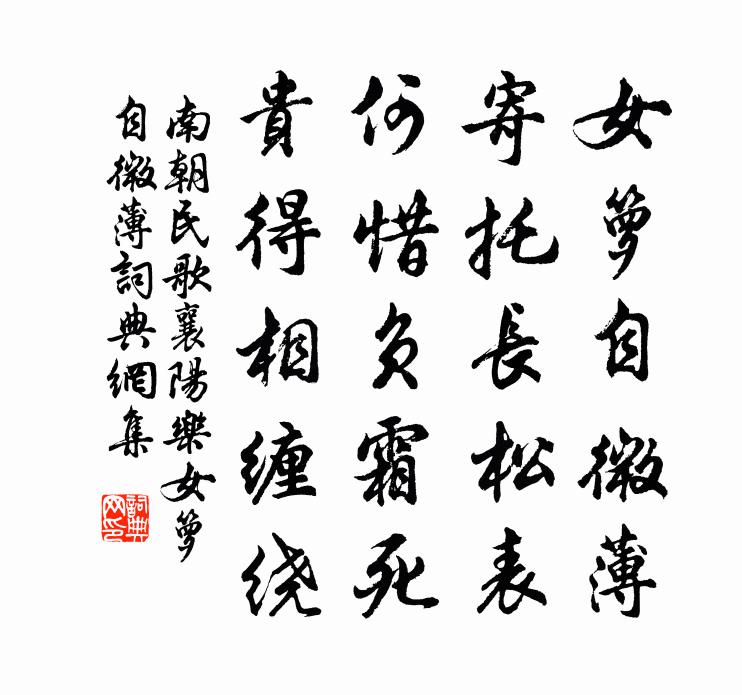 女萝自微薄
寄托長松表
何惜负霜死
貴得相缠绕
南朝民歌襄陽樂女萝
自微薄詞典網集
詞典
网印